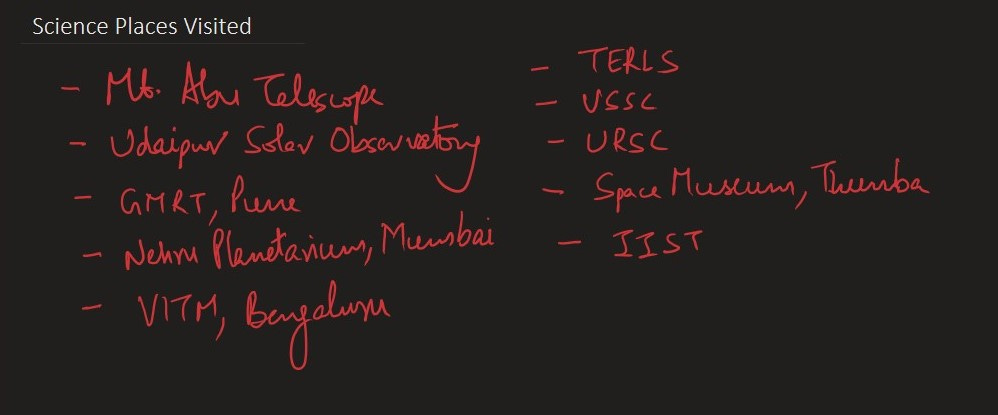 Science Places Visited
- Mt. Abu Telescope
- Udaipur Solar Observatory
- GMRT, Pune
- Nehru Planetarium, Mumbai
- VITM, Bengaluru
- TERLS
- VSSC
- URSC
- Space Museum, Thumba
- IIST